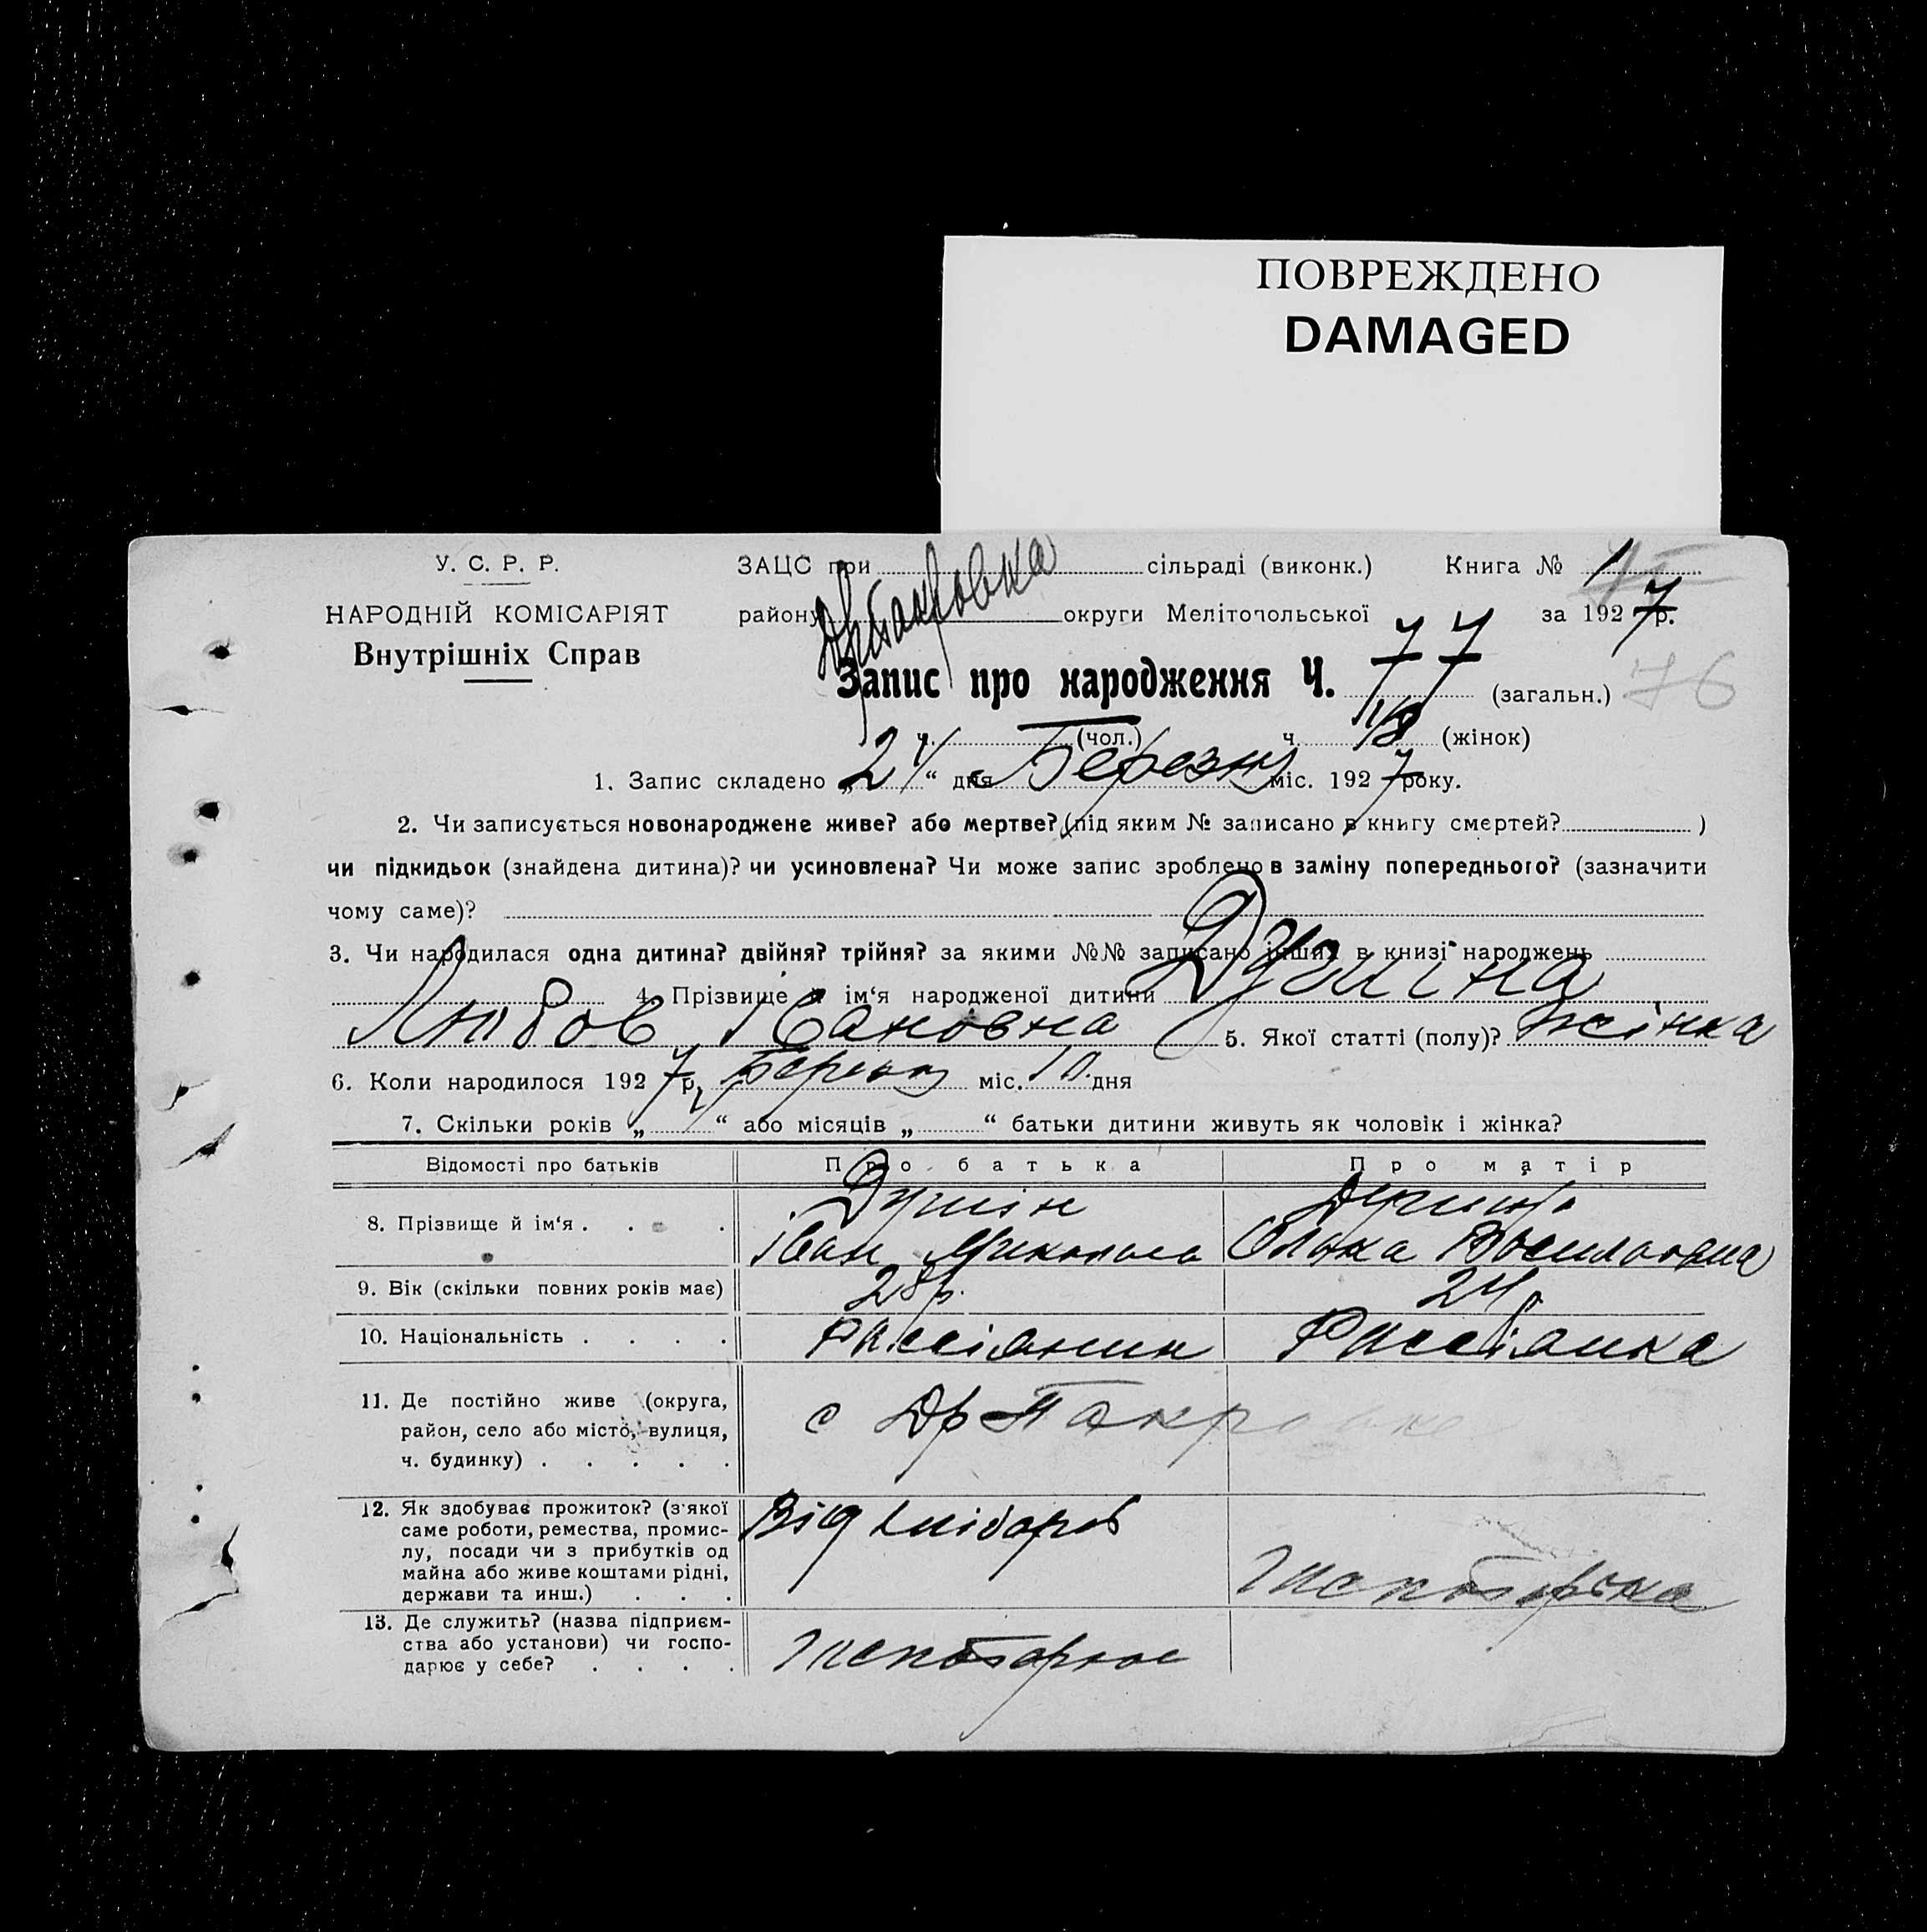 ПОВРЕЖДЕНО
DAMAGED
У. С. Р. Р.
НАРОДНІЙ КОМІСАРІЯТ
Внутрішніх Справ
ЗАЦС при сільраді (виконк.) Книга № 1
району округи Мелітопольської за 1927 р.
Запис про народження Ч. 77 (загальн.) 76
ч. (чол.) ч. (жінок)
1. Запис складено „ “ дня Березня міс. 1927 року.
2. Чи записується новонароджене живе? або мертве? (під яким № записано в книгу смертей? )
чи підкидьок (знайдена дитина)? чи усиновлена? Чи може запис зроблено в заміну попереднього? (зазначити
чому саме)?
3. Чи народилася одна дитина? двійня? трійня? за якими №№ записано інших в книзі народжень
4. Прізвище й ім‘я народженої дитини
Івановна 5. Якої статті (полу)? Жінка
6. Коли народилося 1927 р. Березня міс. 10 дня
7. Скільки років „ “ або місяців „ “ батьки дитини живуть як чоловік і жінка?
Відомості про батьків Про батька Про матір
8. Прізвище й ім‘я . . . .
Іван
9. Вік (скільки повних років має) 28 р. 24 р.
10. Національність . . . .
11. Де постійно живе (округа,
район, село або місто, вулиця,
ч. будинку) . . . . .
с Др Пакровке
12. Як здобуває прожиток? (з‘якої
саме роботи, ремества, промис-
лу, посади чи з прибутків од
майна або живе коштами рідні,
держави та инш.) . . .
Від
13. Де служить? (назва підприєм-
ства або установи) чи госпо-
дарює у себе? . . . .